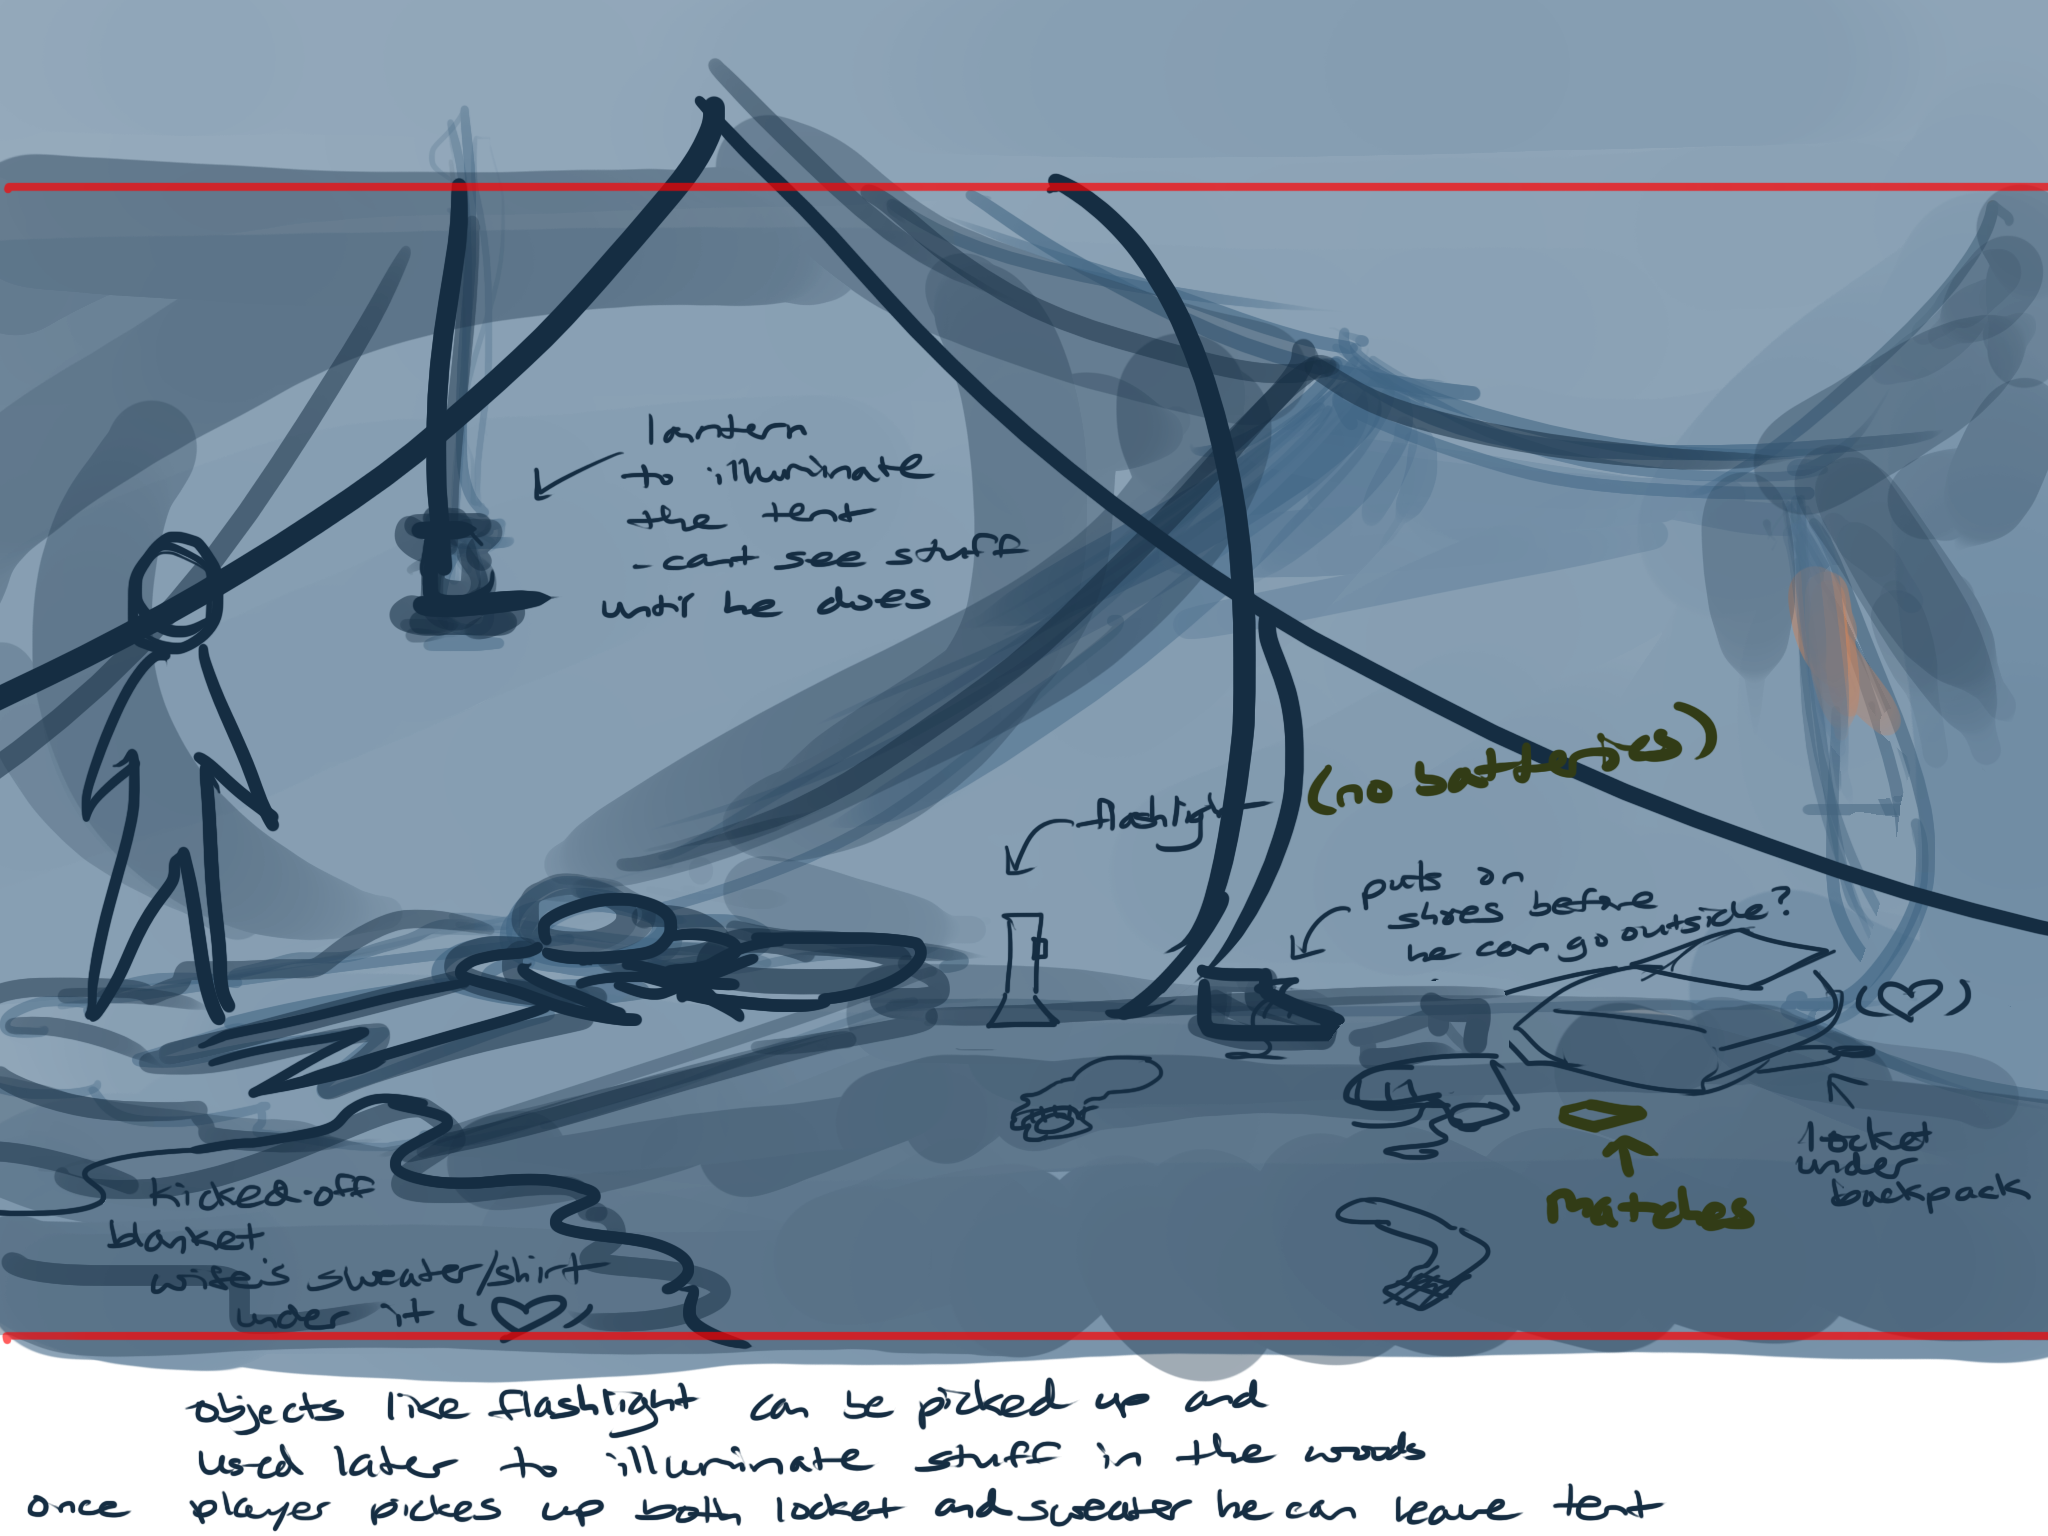 lantern
to illuminate
the tent
- cant see stuff
until he does
(no batteries)
flashlight
puts on
shoes before
he can go outside?
locket
under
backpack
matches
kicked-off
blanket
wife's sweater/shirt
under it (♡)
(♡)
objects like flashlight can be picked up and
used later to illuminate stuff in the woods
once player pickes up both locket and sweater he can leave tent